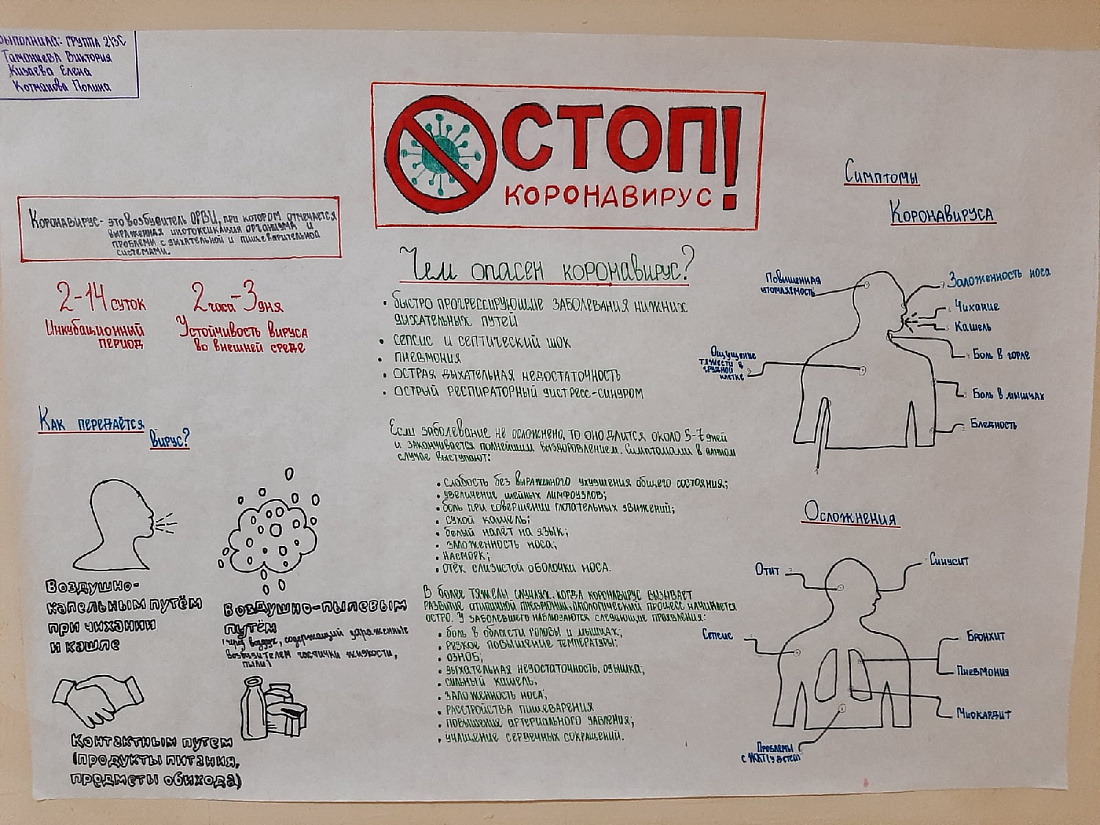 Выполнила: группа 213С
Виктория
Кизаева Елена
Котмакова Полина
СТОП!
КОРОНАВИРУС
Коронавирус- это возбудитель ОРВИ, при котором отмечается
выраженная интоксикация организма и
проблемы с дыхательной и пищеварительной
системами.
2-14 суток
Инкубационный
период
2 часа-3 дня
Устойчивость вируса
во внешней среде
Как передаётся
вирус?
Воздушно-
капельным путём
при чихании
и кашле
Воздушно-пылевым
путём
(через воздух, содержащий зараженные
возбудителем частички жидкости,
пыли)
Контактным путем
(продукты питания,
предметы обихода)
Чем опасен коронавирус?
• Быстро прогрессирующие заболевания нижних
дыхательных путей
• сепсис и септический шок
• пневмония
• острая дыхательная недостаточность
• острый респираторный дистресс-синдром
Если заболевание не осложнено, то оно длится около 5-7 дней
и заканчивается полнейшим выздоровлением. Симптомами в этом
случае выступают:
• слабость без выраженного ухудшения общего состояния;
• увеличение шейных лимфоузлов;
• боль при совершении глотательных движений;
• сухой кашель;
• белый налёт на язык;
• заложенность носа;
• насморк;
• отёк слизистой оболочки носа.
В более тяжелых случаях, когда коронавирус вызывает
развитие атипичной пневмонии, патологический процесс начинается
остро. У заболевшего наблюдаются следующие проявления:
• боль в области головы и мышцах;
• резкое повышение температуры;
• озноб;
• дыхательная недостаточность, одышка;
• сильный кашель,
• заложенность носа;
• расстройства пищеварения
• повышение артериального давления;
• учащение сердечных сокращений.
Симптомы
Коронавируса
Повышенная
утомляемость
Заложенность носа
Чихание
Кашель
Боль в горле
Ощущение
тяжести в
грудной
клетке
Боль в мышцах
Бледность
Осложнения
Отит
Синусит
Сепсис
Бронхит
Пневмония
Миокардит
Проблемы
с ЖКТ (у детей)